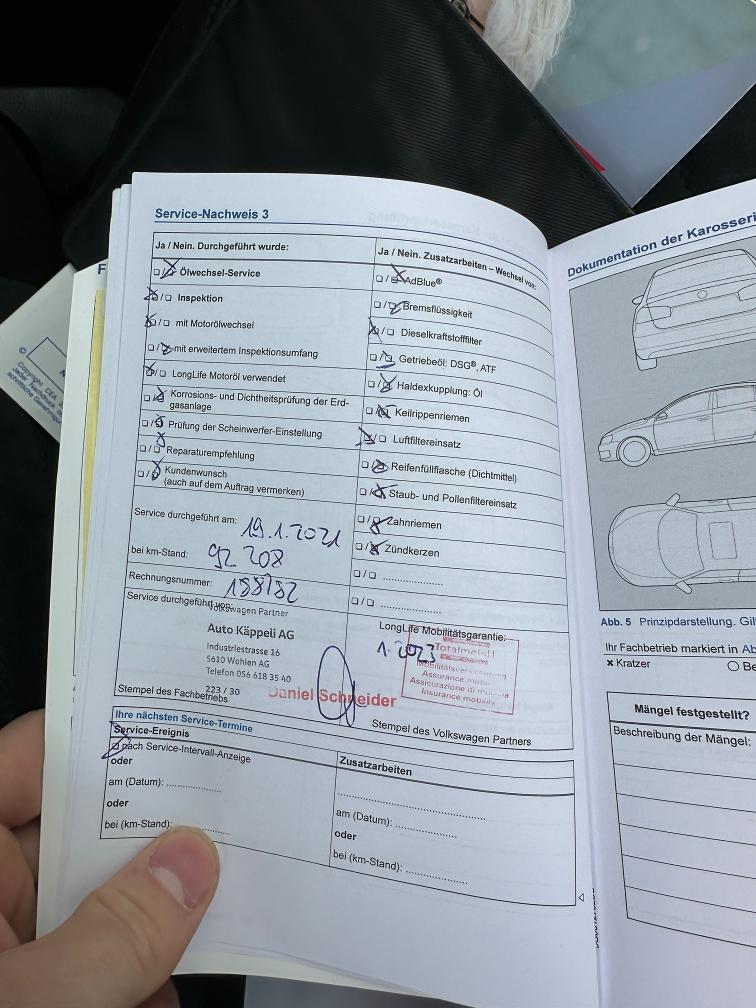 Service-Nachweis 3
Ja / Nein. Durchgeführt wurde:
☐/☒ Ölwechsel-Service
☒/☐ Inspektion
☒/☐ mit Motorölwechsel
☐/☒ mit erweitertem Inspektionsumfang
☒/☐ LongLife Motoröl verwendet
☐/☒ Korrosions- und Dichtheitsprüfung der Erd-
gasanlage
☐/☒ Prüfung der Scheinwerfer-Einstellung
☐/☒ Reparaturempfehlung
☐/☒ Kundenwunsch
(auch auf dem Auftrag vermerken)
Service durchgeführt am: 19.1.2021
bei km-Stand: 92 208
Rechnungsnummer: 188782
Service durchgeführt von:
Volkswagen Partner
Auto Käppeli AG
Industriestrasse 16
5610 Wohlen AG
Telefon 056 618 35 40
223 / 30
Daniel Schneider
Stempel des Fachbetriebs
Ja / Nein. Zusatzarbeiten – Wechsel von:
☐/☒ AdBlue®
☐/☒ Bremsflüssigkeit
☒/☐ Dieselkraftstofffilter
☐/☒ Getriebeöl: DSG®, ATF
☐/☒ Haldexkupplung: Öl
☐/☒ Keilrippenriemen
☒/☐ Luftfiltereinsatz
☐/☒ Reifenfüllflasche (Dichtmittel)
☐/☒ Staub- und Pollenfiltereinsatz
☐/☒ Zahnriemen
☐/☒ Zündkerzen
☐/☐ ......................
☐/☐ ......................
LongLife Mobilitätsgarantie:
1.2023
Totalmobil!
Mobilitätsversicherung
Assurance mobilité
Assicurazione di mobilità
Insurance mobility
Stempel des Volkswagen Partners
Ihre nächsten Service-Termine
Service-Ereignis
☒ nach Service-Intervall-Anzeige
oder
am (Datum): ..................
oder
bei (km-Stand): ..................
Zusatzarbeiten
..............................................
am (Datum): ....................
oder
bei (km-Stand): ....................
Dokumentation der Karosseri
Abb. 5 Prinzipdarstellung. Gil
Ihr Fachbetrieb markiert in Ab
× Kratzer ○ Be
Mängel festgestellt?
Beschreibung der Mängel: